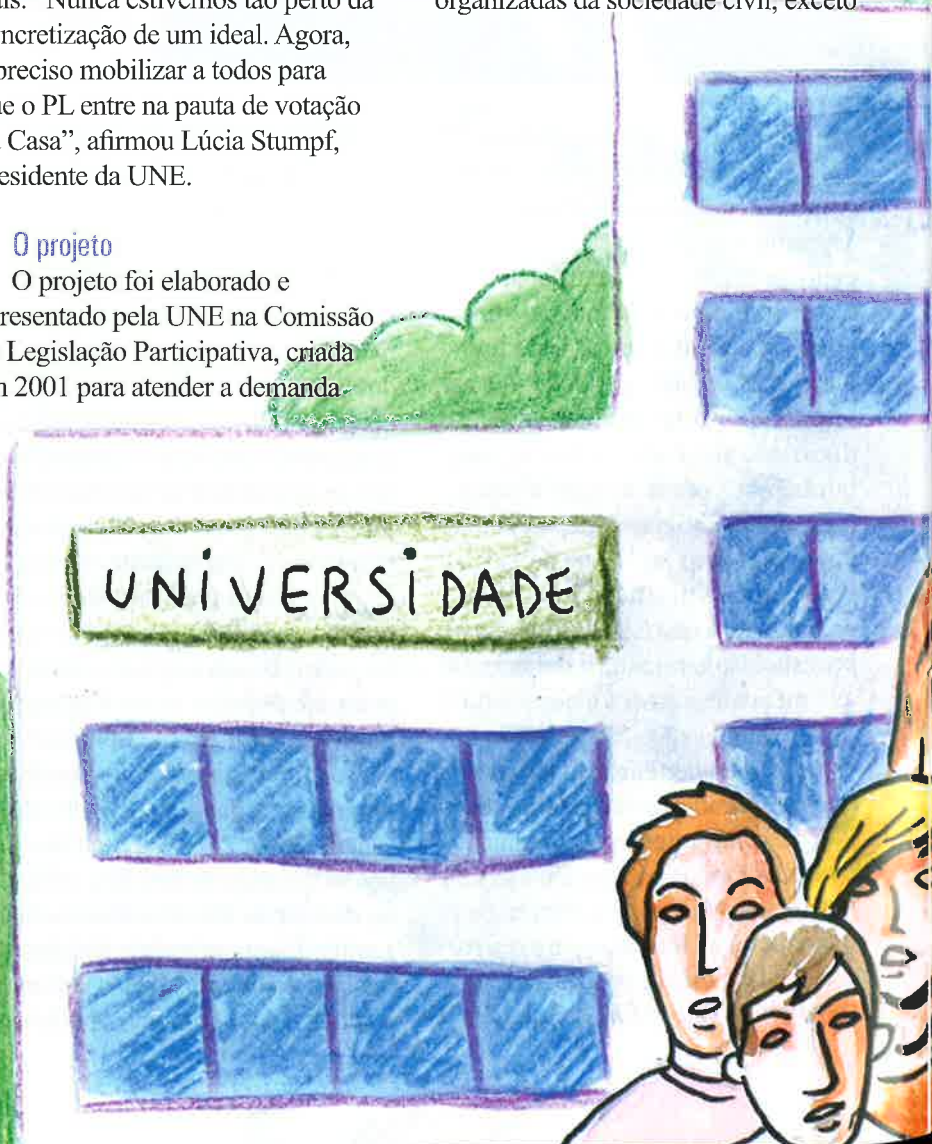 ais. “Nunca estivemos tão perto da
ncretização de um ideal. Agora,
preciso mobilizar a todos para
ue o PL entre na pauta de votação
Casa”, afirmou Lúcia Stumpf,
residente da UNE.
O projeto
O projeto foi elaborado e
resentado pela UNE na Comissão
Legislação Participativa, criada
m 2001 para atender a demanda
organizadas da sociedade civil, exceto
UNIVERSIDADE